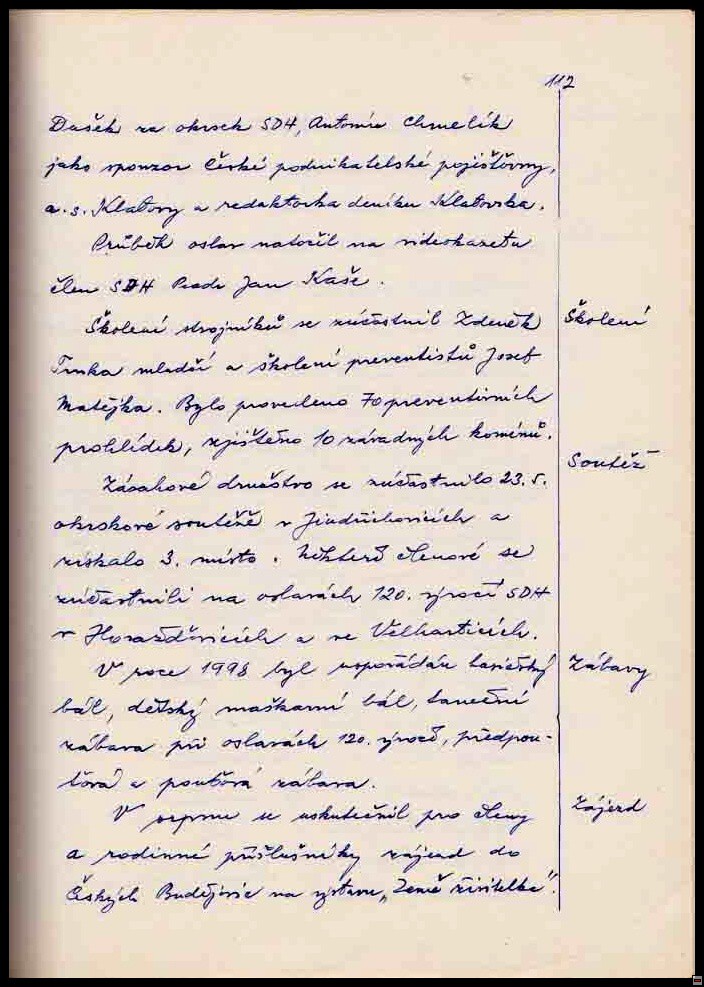 112
Dušek za okrsek SDH, Antonín Chmelík
jako sponzor České podnikatelské pojišťovny,
a.s. Klatovy a redaktorka deníku Klatovska.
Průběh oslav natočil na videokazetu
člen SDH Jan Kaše.
Školení strojníků se zúčastnil Zdeněk
Školení
Trnka mladší a školení preventistů Josef
Matějka. Bylo provedeno 70 preventivních
prohlídek, zjištěno 10 závadných komínů.
Soutěž
Zásahové družstvo se zúčastnilo 23.5.
okrskové soutěže v Jindřichovicích a
získalo 3. místo. Někteří členové se
zúčastnili na oslavách 120. výročí SDH
v Horažďovicích a ve Velharticích.
V roce 1998 byl uspořádán hasičský
Zábavy
bál, dětský maškarní bál, taneční
zábava při oslavách 120. výročí, předpou-
ťová a pouťová zábava.
V srpnu se uskutečnil pro členy
Zájezd
a rodinné příslušníky zájezd do
Českých Budějovic na výstavu „Země živitelka".